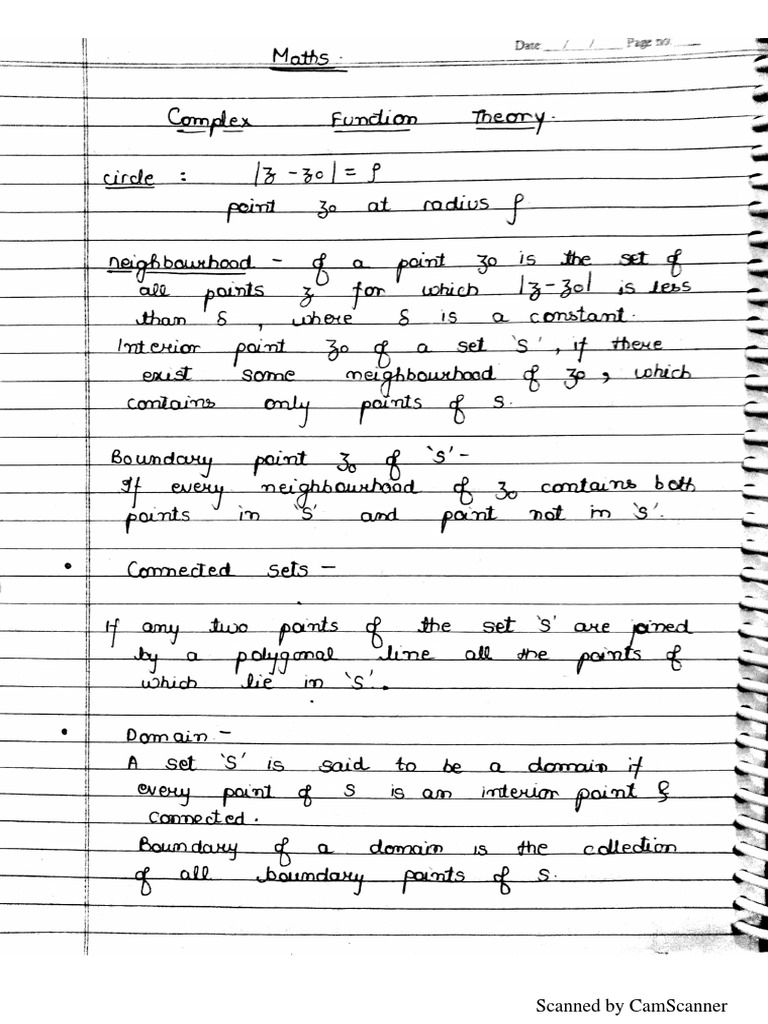 Date __/__/__ Page no. ____
Maths.
Complex Function Theory.
circle : |z - z0| = ρ
point z0 at radius ρ
neighbourhood - of a point z0 is the set of
all points z for which |z-z0| is less
than δ, where δ is a constant.
Interior point z0 of a set 'S', if there
exist some neighbourhood of z0, which
contains only points of S.
Boundary point z0 of 'S' -
If every neighbourhood of z0 contains both
points in 'S' and point not in 'S'.
• Connected sets -
If any two points of the set 'S' are joined
by a polygonal line all the points of
which lie in 'S'.
• Domain -
A set 'S' is said to be a domain if
every point of S is an interior point &
connected.
Boundary of a domain is the collection
of all boundary points of S.
Scanned by CamScanner